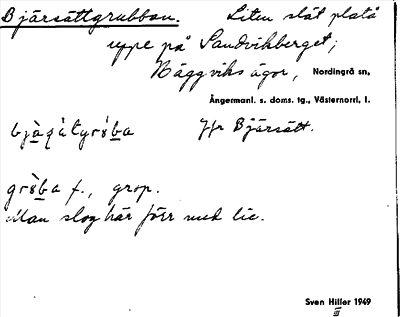 Bjärsättgrubban. Liten slät platå
uppe på Sandvikberget;
Häggviks ägor, Nordingrå sn,
Ångermanl. s. doms. tg., Västernorrl, l.
Jfr Bjärsätt.
f., grop.
Man slog här förr med lie.
Sven Hiller 1949
III